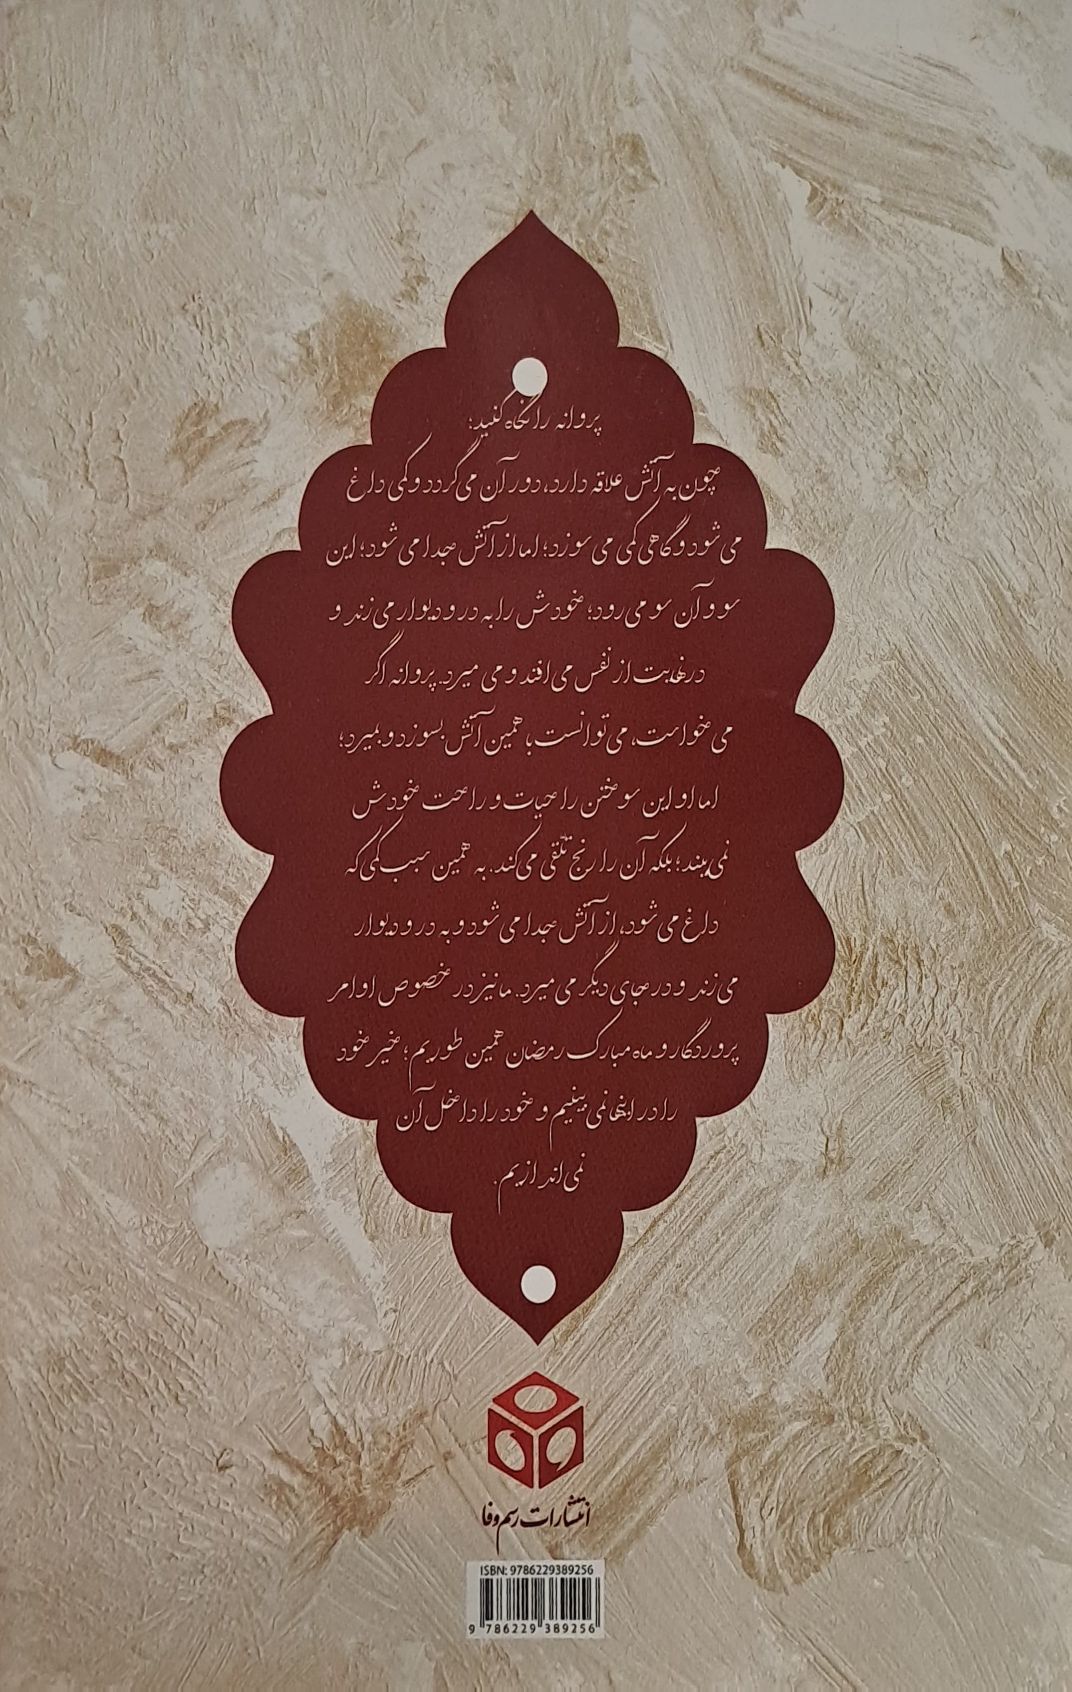 پروانه را نگاه کنید؛
چون به آتش علاقه دارد، دور آن می‌گردد و کمی داغ
می‌شود و گاهی کمی می‌سوزد؛ اما از آتش جدا می‌شود؛ این
سو و آن سو می‌رود؛ خودش را به در و دیوار می‌زند و
در نهایت از نفس می‌افتد و می‌میرد. پروانه اگر
می‌خواست، می‌توانست با همین آتش بسوزد و بمیرد؛
اما او این سوختن را حیات و راحت خودش
نمی‌بیند؛ بلکه آن را رنج تلقّی می‌کند. به همین سبب کمی که
داغ می‌شود، از آتش جدا می‌شود و به در و دیوار
می‌زند و در جای دیگر می‌میرد. ما نیز در خصوص اوامر
پروردگار و ماه مبارک رمضان همین طوریم؛ خیر خود
را در اینها نمی‌بینیم و خود را داخل آن
نمی‌اندازیم.
انتشارات رسم وفا
ISBN: 9786229389256
9 786229 389256